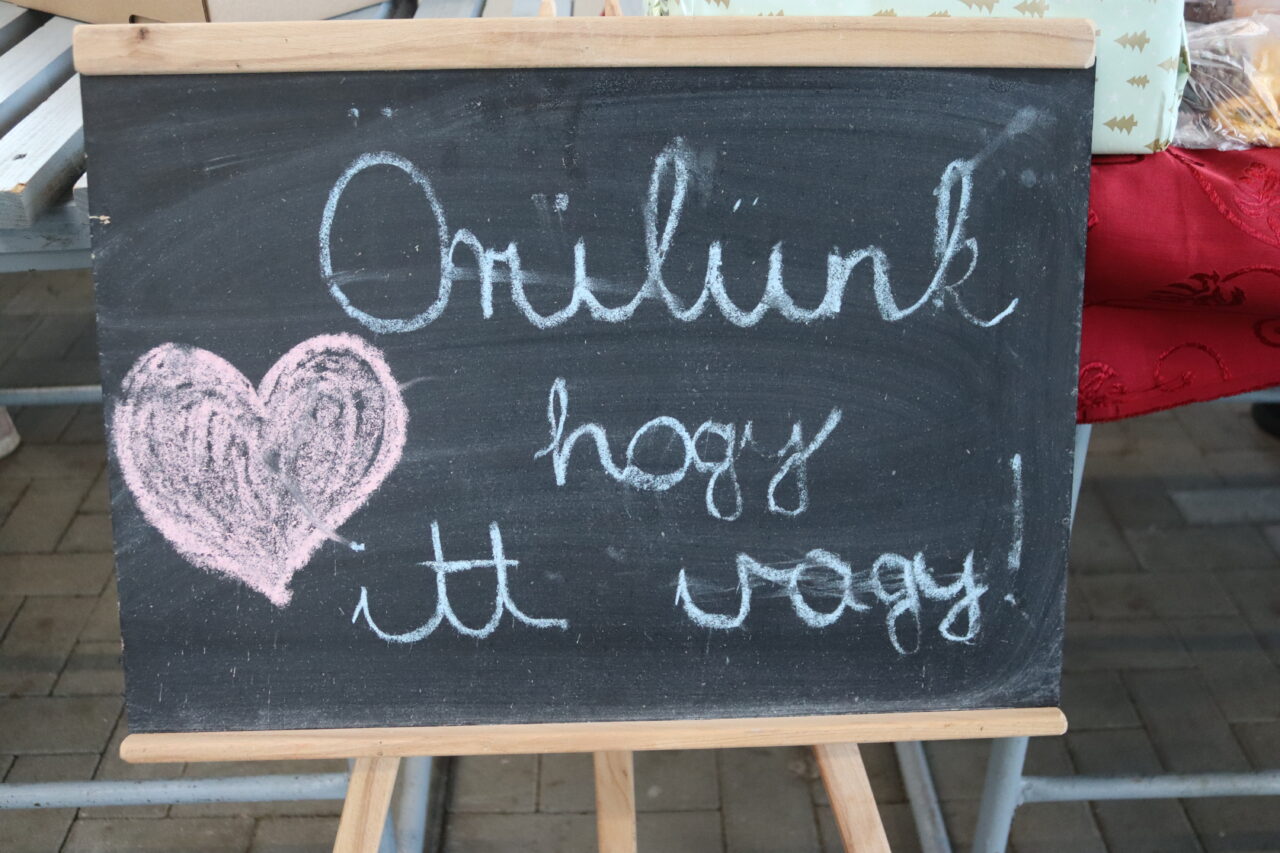 Örülünk
hogy
itt vagy!